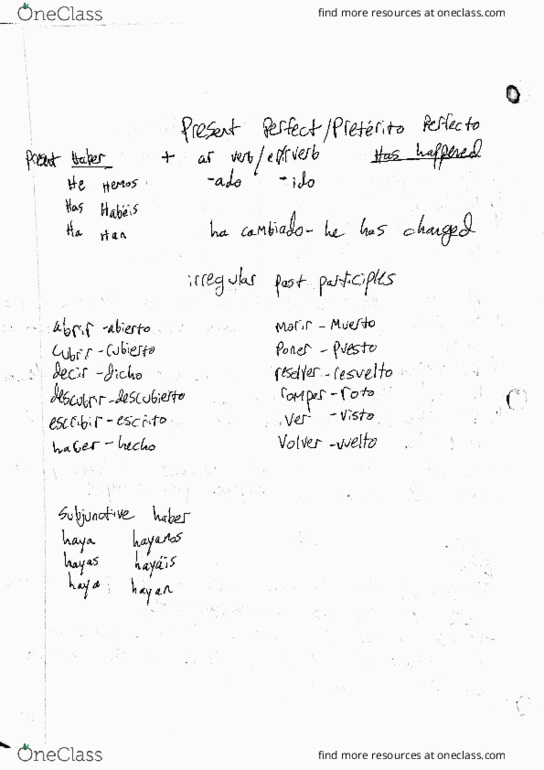 OneClass find more resources at oneclass.com
Present Perfect/Pretérito Perfecto
Present Haber + ar verb/er/ir verb Has happened
-ado -ido
He Hemos
Has Habéis
Ha Han
ha cambiado- he has changed
irregular past participles
abrir -abierto
cubrir -cubierto
decir -dicho
descubrir-descubierto
escribir -escrito
hacer -hecho
Morir - Muerto
Poner - Puesto
resolver -resuelto
romper -roto
ver -visto
Volver -vuelto
Subjunctive haber
haya hayamos
hayas hayáis
haya hayan
OneClass find more resources at oneclass.com